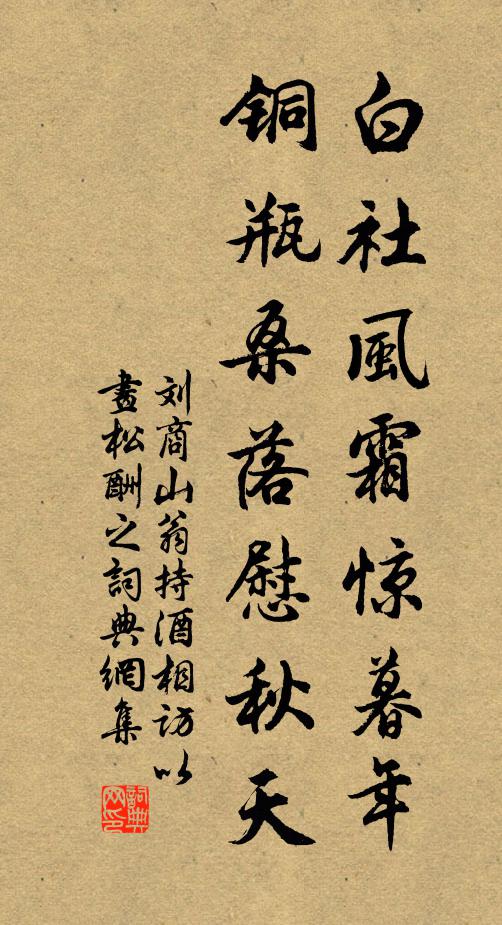 白社風霜惊暮年
铜瓶桑落慰秋天
刘商山翁持酒相访以
畫松酬之詞典網集
詞典网印